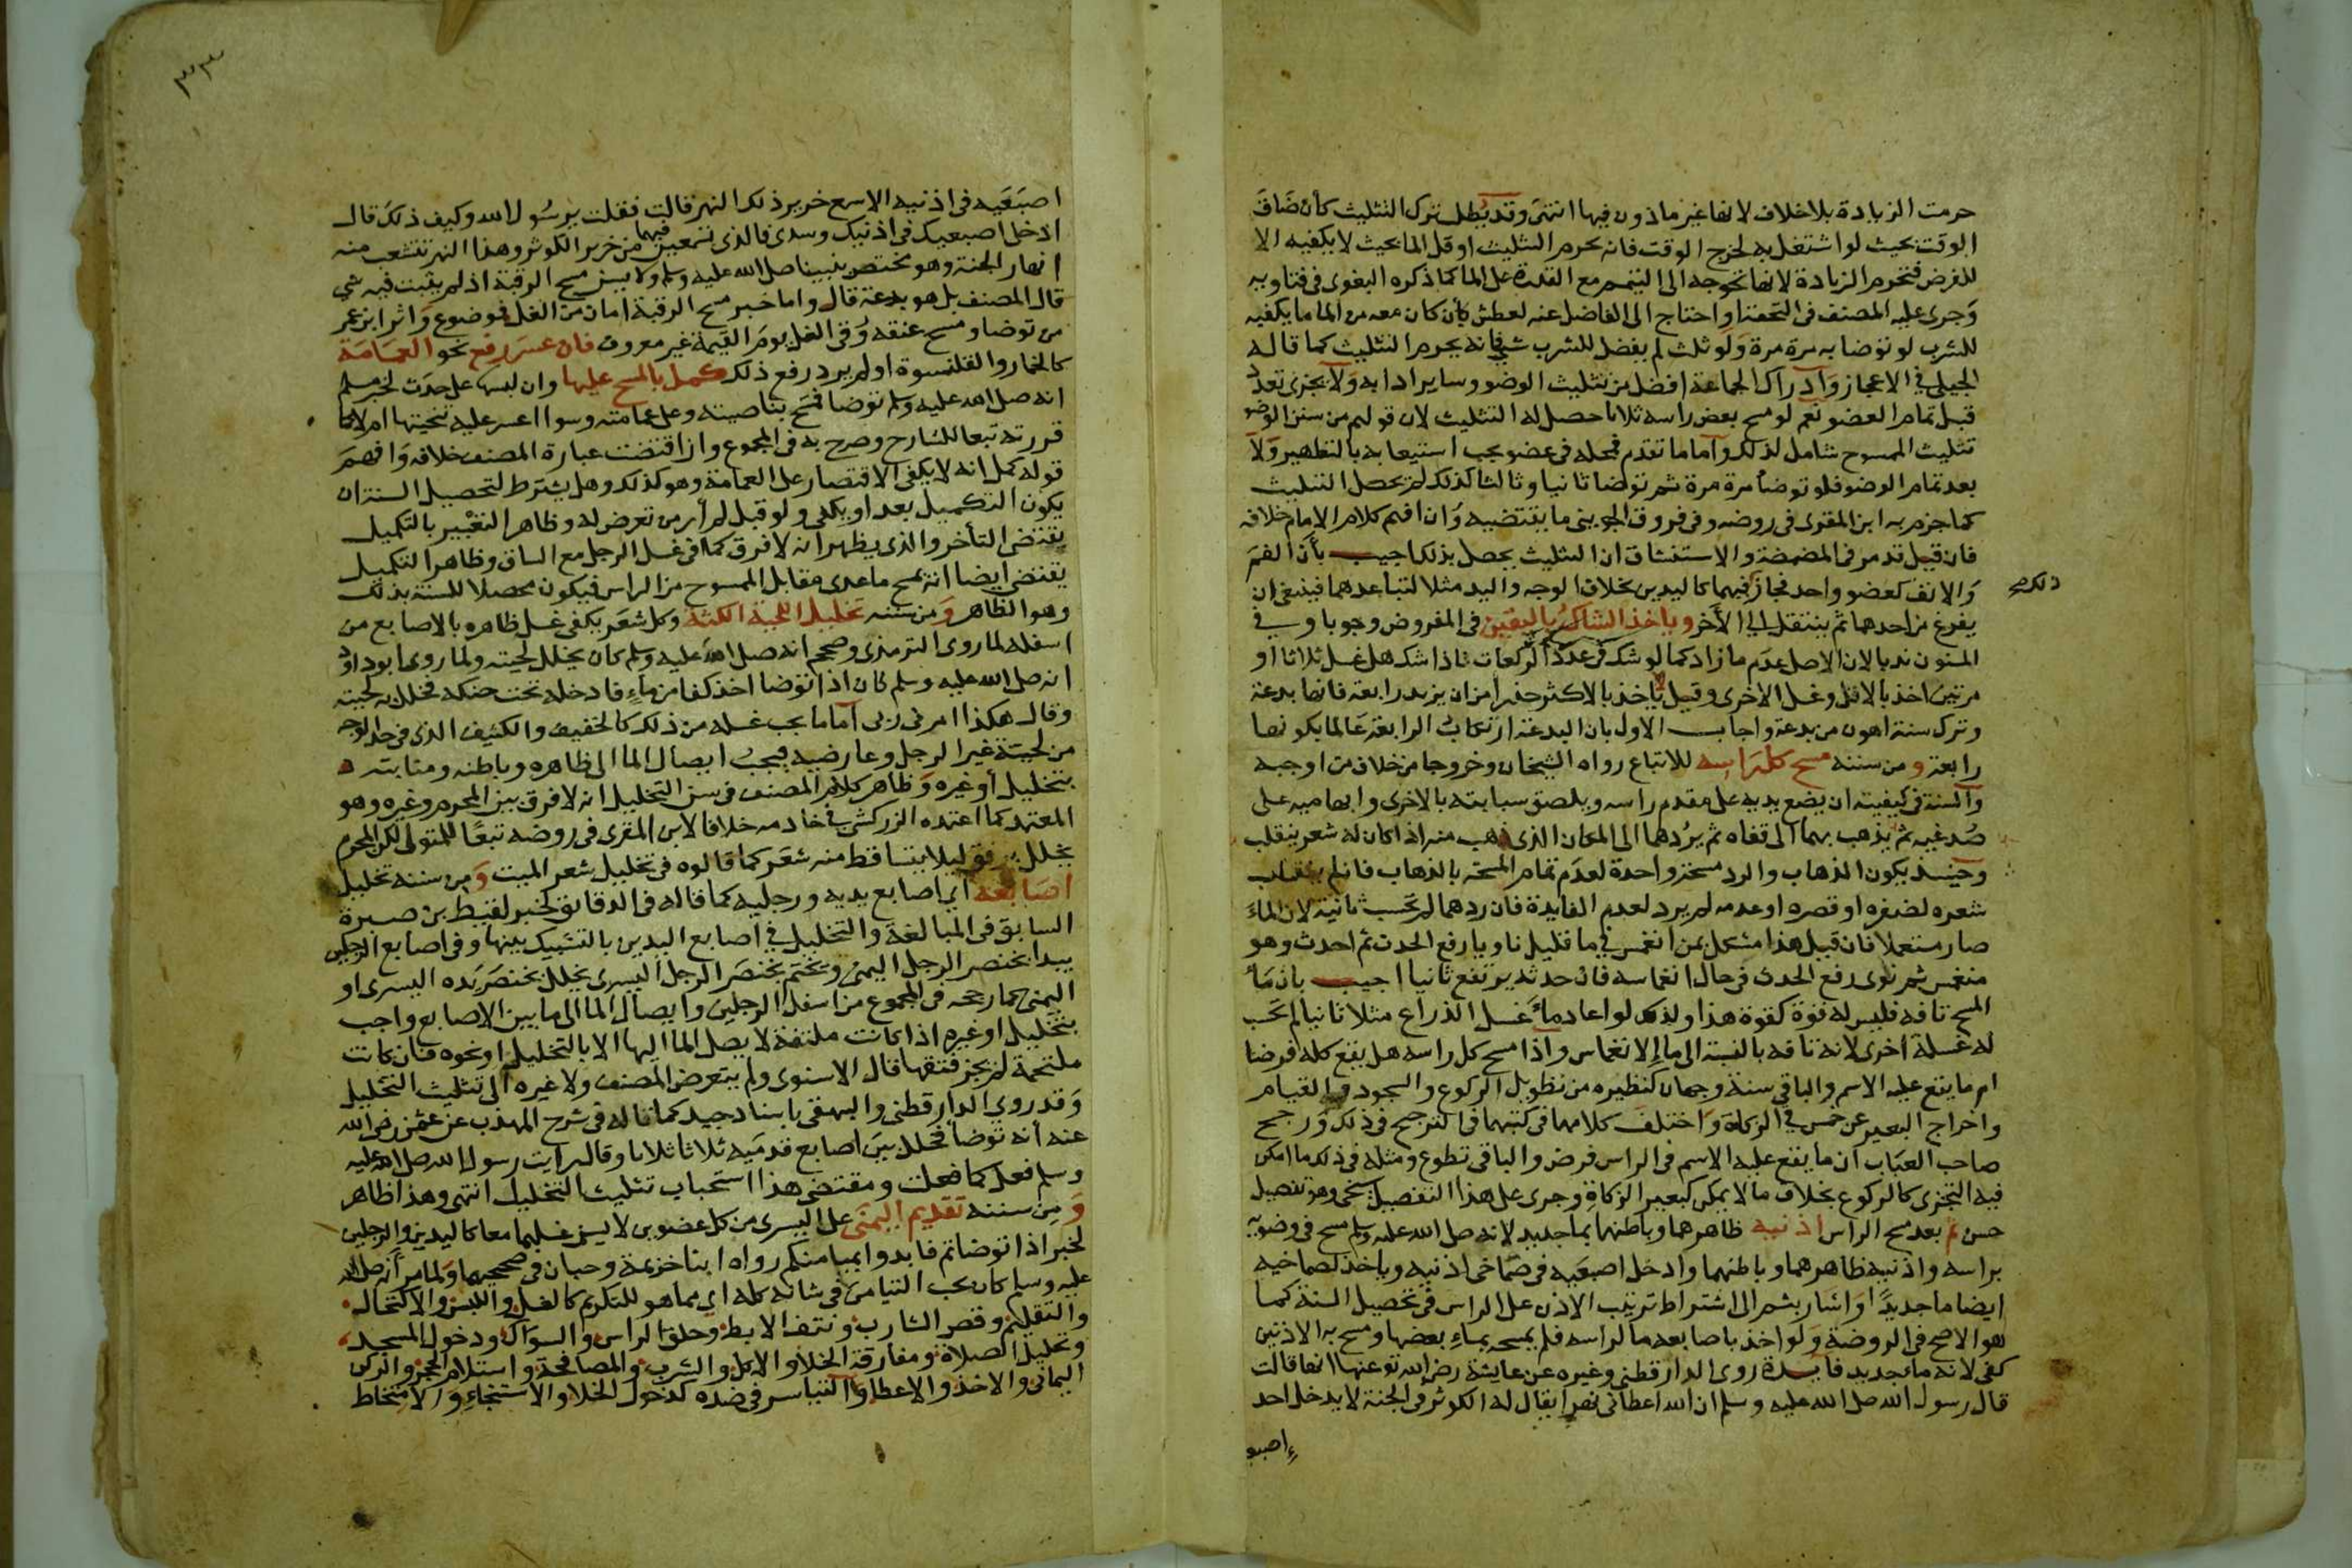 حرمت الزيادة بلا خلاف لانها غير ماذون فيها انتهى وقد يطلب ترك التثليث كأن ضاق
الوقت بحيث لو اشتغل به لخرج الوقت فانه يحرم التثليث او قل الما بحيث لا يكفيه الا
للفرض فتحرم الزيادة لانها تحوجه الى التيمم مع القدرة على الما كما ذكره البغوى فى فتاويه
وجرى عليه المصنف فى التحقيق او احتاج الى الفاضل عنه لعطش كأن كان معه من الما ما يكفيه
للشرب لو توضا به مرة مرة ولو ثلث لم يفضل للشرب شي فانه يحرم التثليث كما قاله
الجيلي في الاعجاز وادراك الجماعة افضل من تثليث الوضو وساير ادابه ولا يجزى تعدد
قبل تمام العضو نعم لو مسح بعض راسه ثلاثا حصل له التثليث لان قولهم من سنن الوضو
تثليث الممسوح شامل لذلك واما ما تقدم فمحله فى عضو يجب استيعابه بالتطهير ولا
بعد تمام الوضو فلو توضأ مرة مرة ثم توضا ثانيا وثالثا كذلك لم يحصل التثليث
كما جزم به ابن المقرى فى روضه وفى فروق الجوينى ما يقتضيه وان افهم كلام الامام خلافه
فان قيل قد مر فى المضمضة والاستنشاق ان التثليث يحصل بذلك اجيب بأن الفم
والانف كعضو واحد فجاز فيهما كاليدين بخلاف الوجه واليد مثلا لتباعدهما فينبغى ان
ذلك صح
يفرغ من احدهما ثم ينتقل الى الأخر وياخذ الشاك باليقين فى المفروض وجوبا وفى
المسنون ندبا لان الاصل عدم ما زاد كما لو شك فى عدد الركعات فاذا شك هل غسل ثلاثا او
مرتين اخذ بالاقل وغسل الاخرى وقيل ياخذ بالاكثر حذرا من ان يزيد رابعة فانها بدعة
وترك سنة اهون من بدعة واجاب الاول بان البدعة ارتكاب الرابعة عالما بكونها
رابعة و من سننه مسح كل راسه للاتباع رواه الشيخان وخروجا من خلاف من اوجبه
والسنة فى كيفيته ان يضع يديه على مقدم راسه ويلصق سبابته بالاخرى وابهاميه على
صدغيه ثم يذهب بهما الى قفاه ثم يردهما الى المكان الذى ذهب منه اذا كان له شعر ينقلب
وحينئذ يكون الذهاب والرد مسحة واحدة لعدم تمام المسحة بالذهاب فان لم ينقلب
شعره لضفره او قصره او عدمه لم يرد لعدم الفايدة فان ردهما لم تحسب ثانية لان الماء
صار مستعملا فان قيل هذا مشكل بمن انغمس في ما قليل ناويا رفع الحدث ثم احدث وهو
منغمس ثم نوى رفع الحدث فى حال انغماسه فان حدثه يرتفع ثانيا اجيب بان ماء
المسح تافه فليس له قوة كقوة هذا ولذلك لو اعاد ماء غسل الذراع مثلا ثانيا لم تحسب
له غسلة اخرى لانه تافه بالنسبة الى ما الانغماس واذا مسح كل راسه هل يقع كله فرضا
ام ما يقع عليه الاسم والباقى سنة وجهان كنظيره من تطويل الركوع والسجود والقيام
واخراج البعير عن خمس في الزكاة واختلف كلامهما فى كتبهما فى الترجيح فى ذلك ورجح
صاحب العباب ان ما يقع عليه الاسم فى الراس فرض والباقى تطوع ومثله فى ذلك ما امكن
فيه التجزى كالركوع بخلاف ما لا يمكن كبعير الزكاة وجرى على هذا التفصيل شيخى وهو تفصيل
حسن ثم بعد مسح الراس اذنيه ظاهرهما وباطنهما بما جديد لانه صلى الله عليه وسلم مسح فى وضويه
براسه واذنيه ظاهرهما وباطنهما وادخل اصبعيه فى صماخى اذنيه وياخذ لصماخيه
ايضا ما جديدا واشار بثم الى اشتراط ترتيب الاذن على الراس فى تحصيل السنة كما
هو الاصح فى الروضة ولو اخذ باصابعه ما لراسه فلم يمسحه بماء بعضها ومسح به الاذنين
كفى لانه ماء جديد فايدة روى الدارقطنى وغيره عن عايشة رضى الله تع عنها انها قالت
قال رسول الله صلى الله عليه وسلم ان الله اعطانى نهرا يقال له الكوثر فى الجنة لا يدخل احد
اصبعيه فى اذنيه الا سمع خرير ذلك النهر قالت فقلت يرسول الله وكيف ذلك قال
ادخلى اصبعيك فى اذنيك وسدى فالذى تسمعين فيهما من خرير الكوثر وهذا النهر تتشعب منه
انهار الجنة وهو مختص بنبينا صلى الله عليه وسلم ولا يسن مسح الرقبة اذ لم يثبت فيه شي
قال المصنف بل هو بدعة قال واما خبر مسح الرقبة امان من الغل فموضوع واثر ابن عمر
من توضا ومسح عنقه وقى الغل يوم القيمة غير معروف فان عسر رفع نحو العمامة
كالخمار والقلنسوة او لم يرد رفع ذلك كمل بالمسح عليها وان لبسها على حدث لخبر مسلم
انه صلى الله عليه وسلم توضا فمسح بناصيته وعلى عمامته وسوا اعسر عليه تنحيتها ام لا كما
قررته تبعا للشارح وصرح به فى المجموع وان اقتضت عبارة المصنف خلافه وافهم
قوله كمل انه لا يكفى الاقتصار على العمامة وهو كذلك وهل يشترط لتحصيل السنة ان
يكون التكميل بعد او يكفى ولو قبل لم أر من تعرض له وظاهر التعبير بالتكميل
يقتضى التأخر والذى يظهر انه لا فرق كما فى غسل الرجل مع الساق وظاهر التكميل
يقتضى ايضا انه يمسح ما عدى مقابل الممسوح من الراس فيكون محصلا للسنة بذلك
وهو الظاهر ومن سننه تخليل اللحية الكثة وكل شعر يكفى غسل ظاهره بالاصابع من
اسفله لما روى الترمذى وصححه انه صلى الله عليه وسلم كان يخلل لحيته ولما روى ابو داود
انه صلى الله عليه وسلم كان اذا توضا اخذ كفا من ماء فادخله تحت حنكه فخلل به لحيته
وقال هكذا امرنى ربى اما ما يجب غسله من ذلك كالخفيف والكثيف الذى فى حد الوجه
من لحية غير الرجل وعارضيه فيجب ايصال الما الى ظاهره وباطنه ومنابته
بتخليل أو غيره وظاهر كلام المصنف فى سن التخليل انه لا فرق بين المحرم وغيره وهو
المعتمد كما اعتمده الزركشى فى خادمه خلافا لابن المقرى فى روضه تبعا للمتولى لكن المحرم
يخلل برفق ليلا يتساقط منه شعر كما قالوه فى تخليل شعر الميت و من سننه تخليل
اصابعه اي اصابع يديه ورجليه كما قاله فى الدقائق لخبر لقيط بن صبرة
السابق فى المبالغة والتخليل في اصابع اليدين بالتشبيك بينها وفى اصابع الرجلين
يبدا بخنصر الرجل اليمنى ويختم بخنصر الرجل اليسرى يخلل بخنصر يده اليسرى او
اليمنى كما رجحه فى المجموع من اسفل الرجلين وايصال الما الى ما بين الاصابع واجب
بتخليل او غيره اذا كانت ملتفة لا يصل الما اليها الا بالتخليل او نحوه فان كانت
ملتحمة لم يجز فتقها قال الاسنوى ولم يتعرض المصنف ولا غيره الى تثليث التخليل
وقد روى الدارقطنى والبيهقى باسناد جيد كما قاله فى شرح المهذب عن عثمن رضى الله
عنه أنه توضأ فخلل بين اصابع قدميه ثلاثا ثلاثا وقال رايت رسول الله صلى الله عليه
وسلم فعل كما فعلت ومقتضى هذا استحباب تثليث التخليل انتهى وهذا ظاهر
و من سننه تقديم اليمنى على اليسرى من كل عضوين لا يسن غسلهما معا كاليدين والرجلين
لخبر اذا توضاتم فابدوا بميامنكم رواه ابنا خزيمة وحبان فى صحيحيهما ولما مر أنه صلى الله
عليه وسلم كان يحب التيامن فى شانه كله اي مما هو للتكريم كالغسل واللبس والاكتحال
والتقليم وقص الشارب ونتف الابط وحلق الراس والسواك ودخول المسجد
وتحليل الصلاة ومفارقة الخلا والاكل والشرب والمصافحة واستلام الحجر والركن
اليمانى والاخذ والاعطا والتياسر فى ضده كدخول الخلا والاستنجاء والامتخاط